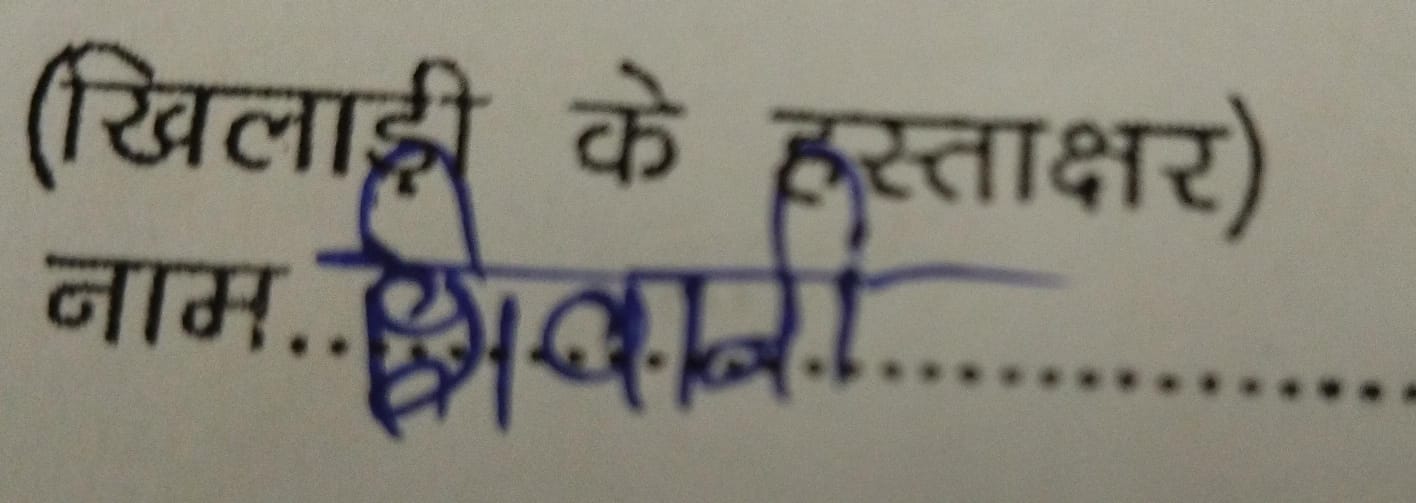 (खिलाड़ी के हस्ताक्षर)
नाम..शिवानी..................